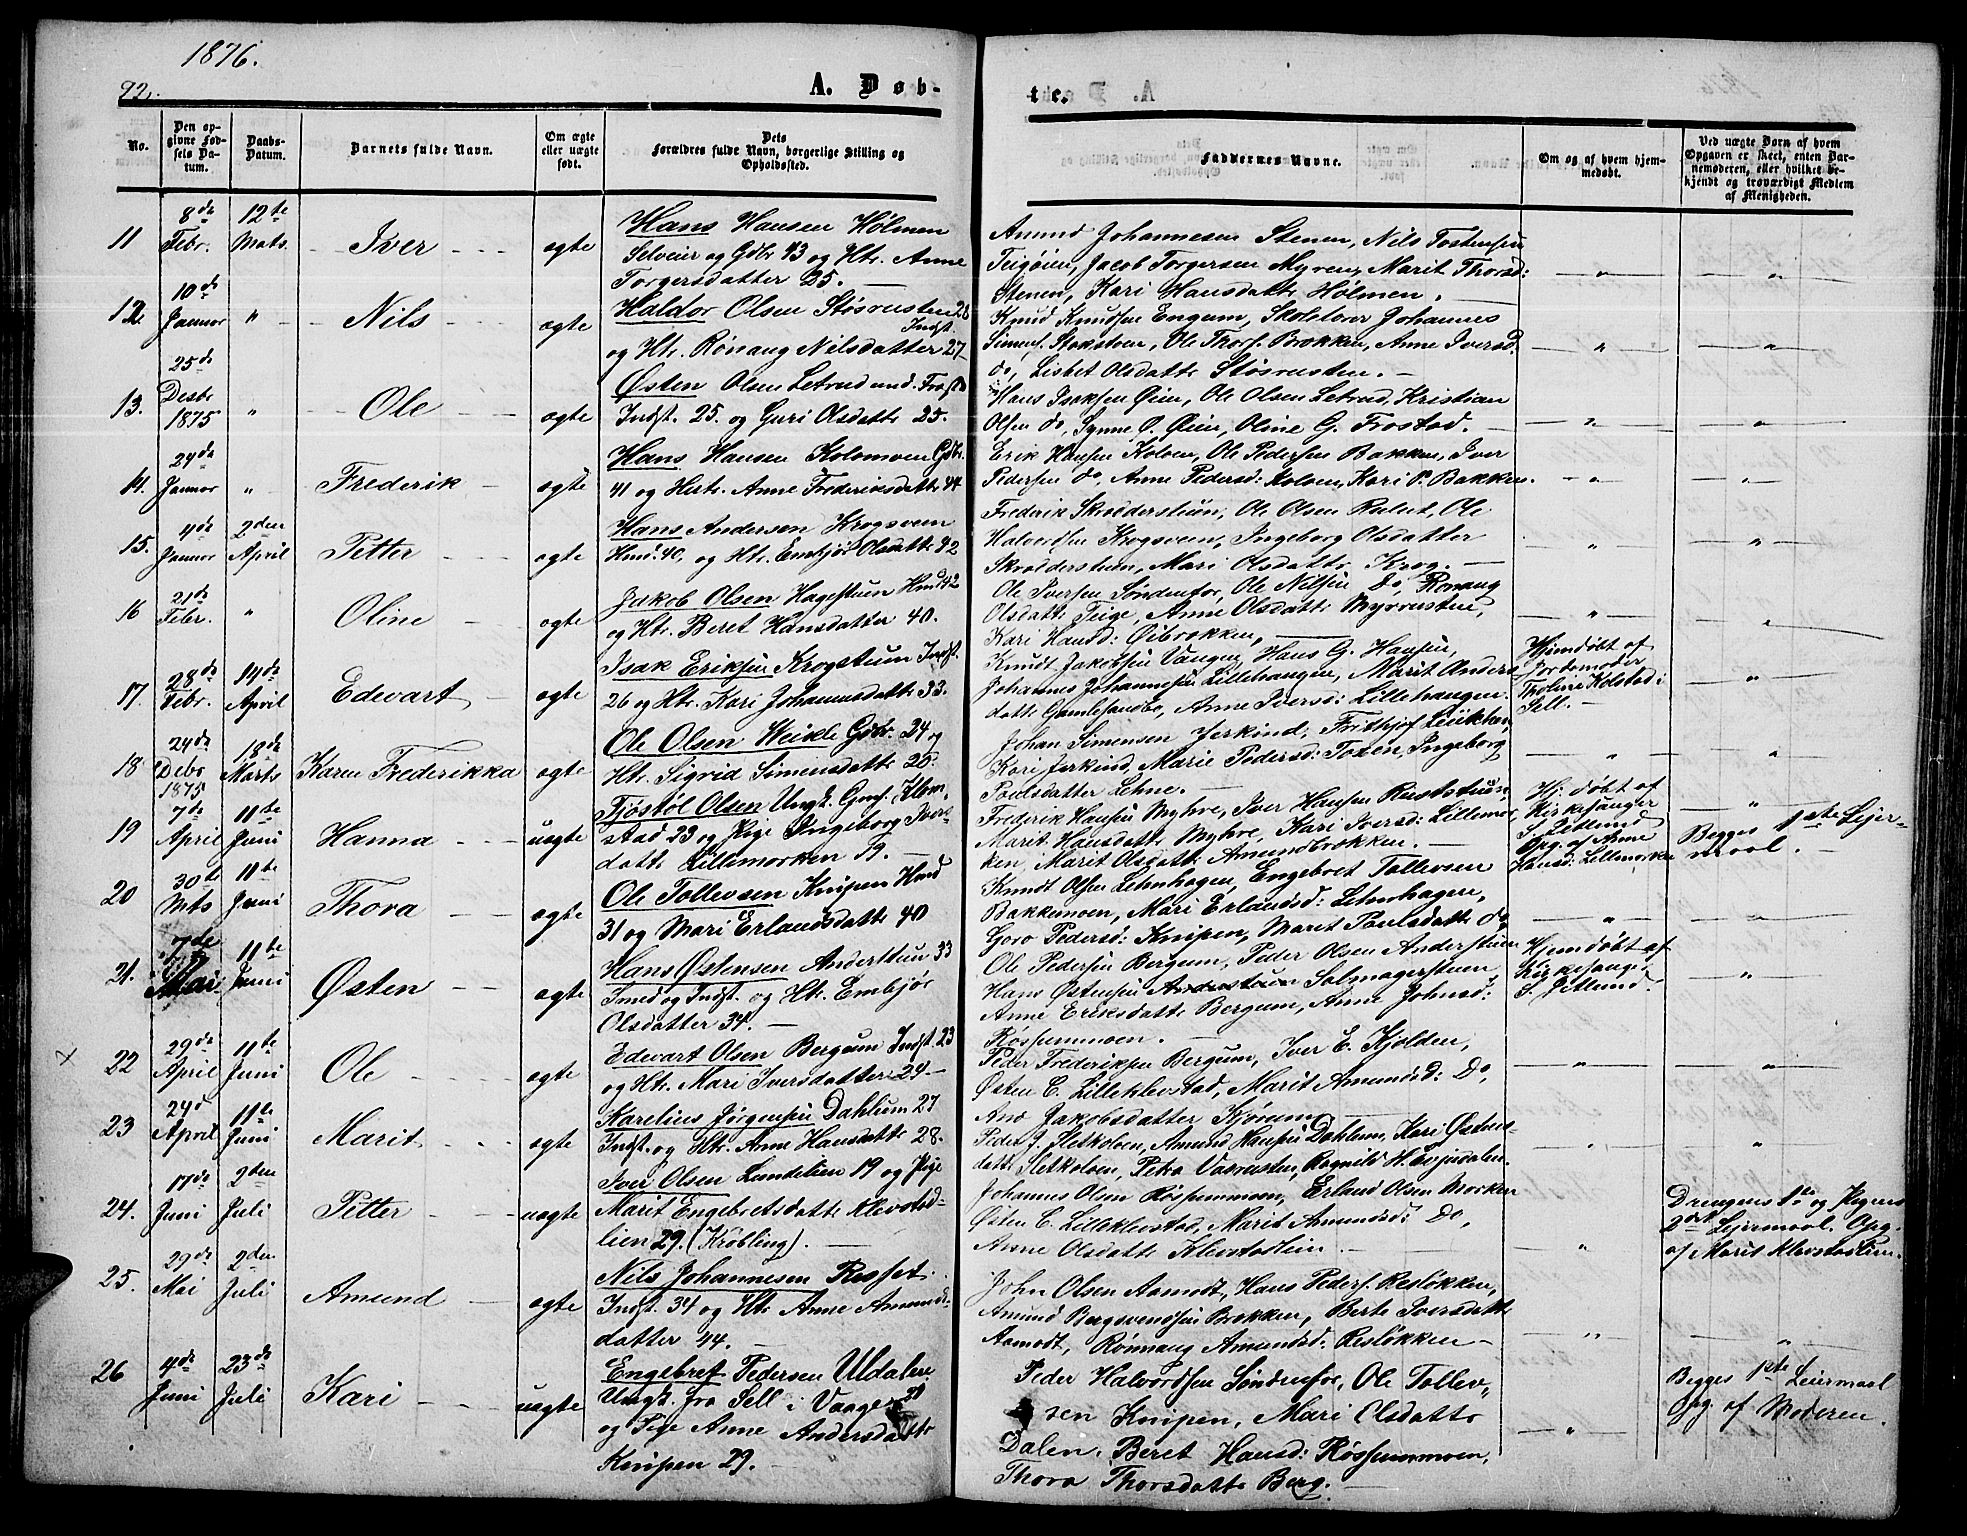 1876.
92.
A. Døb-
te.
No.
Den op-
givne Fød-
sels Da-
tum.
Daabs-
Datum.
Barnets fulde Navn.
Om ægte
eller uægte
født.
Dets
Forældres fulde Navn, borgerlige Stilling og
Opholdssted.
Faddernes Navne.
Om og af hvem hjem-
medøbt.
Ved uægte Børn af hvem
Opgaven er skeet, enten Bar-
nemoderen, eller hvilket be-
kjendt og troværdigt Medlem
af Menigheden.
11 8de Febr. 12te Mats. Iver ægte
Hans Hansen Hølmen
Selveier og Gdbr 43 og Htr. Anne
Torgersdatter 25.
Amund Johannesen Stenen, Nils Tostensen
Teigøien, Jacob Torgersen Myren, Marit Thorsd:
Stenen, Kari Hansdattr Hølmen.
12. 10de Januar " Nils ægte
Haldor Olsen Støsrusten 28
Indst.
og Htr. Rønaug Nilsdatter 27
Knud Knudsen Engum, Skolelærer Johannes
Simens. Stokstven, Ole Thors. Brokken, Anne Iversd.
do, Lisbet Olsdattr Støsrusten.
13. 25de Desbr 1875 " Ole ægte
Østen Olsen Letrud und. Frostd
Indst. 25. og Guri Olsdattr 25.
Hans Isaksen Øien, Ole Olsen Letrud, Kristian
Olsen do, Synne O. Øien, Oline G. Frostad.
14. 24de Januar " Frederik ægte
Hans Hansen Kolomven Gdbr.
41 og Hustr. Anne Frederiksdattr 44
Erik Hansen Kolven, Ole Pedersen Bakken, Iver
Pedersen do, Anne Pedersd: Kolven, Kari P. Bakken.
15. 4de Januar 2den April Petter ægte
Hans Andersen Krogsveen
Hmd. 40, og Htr. Embjør Olsdattr 42
Frederik Skrødderstuün, Ole Olsen Rulut, Ole
Halvordsen Krogsveen, Ingeborg Olsdatter
Skrødderstuen, Mari Olsdattr Krog.
16 21de Febr. " Oline ægte
Jakob Olsen Hagestuen Hmd 42
og Htr. Beret Hansdatter 40.
Ole Iversen Søndenfor, Ole Nilsen Do, Rønaug
Olsdattr Teige, Anne Olsdattr Myrrusten,
Kari Hansd: Øibrokken,
17. 28de Febr. 14de April Edevart ægte
Isak Eriksen Krogstuen Indst.
26 og Htr. Kari Johannesdattr 33.
Knudt Jakobsen Vangen, Hans G. Hansen,
Johannes Johannesen Lillehaugen, Marit Anders-
dattr Gamlesandbo, Anne Iversd: Lillehaugen.
Hjemdøbt af
Jordemoder
Tholine Kolstad i
Sell.
18 24de Debr 1875 18de Marts Karen Frederikka ægte
Ole Olsen Weikle Gdbr. 24 og
Htr. Sigrid Simensdattr 26.
Johan Simensen Jerkind, Frithjof Lükken,
Kari Jerkind, Marie Pedersd: Toften, Ingeborg
Poulsdatter Lehne.
19 7de April 11te Juni Hanna uægte
Tjøstøl Olsen Ungk. Gmf. Klom,
stad 23 og Pige Ingeborg Ivers-
dattr Lillemorken 19.
Frederik Hansen Myhre, Iver Hansen Ruststuen,
Marit Hansdattr Myhre, Kari Iversd: Lillemor,
ken, Marit Olsdattr Amundbrokken.
Hj. døbt af
Kirkesanger
S. Jetlund
Opg. af Anne
Hansd: Lillemorken
Begges 1ste Lejer-
maal.
20 30te Mts 11te Juni Thora ægte
Ole Tollevsen Knipen Hmd
31 og Mari Erlandsdattr 40
Knudt Olsen Lehnhagen, Engebret Tollevsen
Bakkemoen, Mari Erlandsd: Lehnhagen,
Goro Pedersd: Knipen, Marit Paulsdattr do
21. 7de Mai 11te Juni Østen ægte
Hans Østensen Anderstun 33
Smed og Indst. og Htr. Embjør
Olsdatter 34.
Ole Pedersen Bergum, Peder Olsen Anderstuen
Hans Østensen Anderstuen Solmagerstuen,
Anne Eriksdattr Bergum, Anne Johnsd:
Røssummoen.
Hjemdøbt af
Kirkesanger
S. Jetlund.
22 29de April 11te Juni Ole ægte
Edevart Olsen Bergum Indst. 23
og Htr. Mari Iversdatter 24
Peder Frederiksen Bergum, Iver E. Kjolden,
Østen E. Lilleklevstad, Marit Amundsd: Do,
Ane Jakobsdatter Kjørum
23 24de April 11te Juni Marit ægte
Karelius Jørgensen Dahlum 27
Indst. og Htr. Anne Hansdattr 28.
Peder J. Sletkolven, Amund Hansen Dahlum, Kari Østens-
dattr Sletkolven, Petra Vaarusten, Ragnild H. Evjusdalen.
24. 17de Juni 2den Juli Petter uægte
Iver Olsen Lundelien 19 og Pige
Marit Engebretsdattr Klevstad-
lien 29. (Krøbling).
Johannes Olsen Røssummoen, Erland Olsen Morken
Østen E. Lilleklevstad, Marit Amundsd: Do,
Anne Olsdattr Klevstadlien
Drengens 1te og Pigens
2det Lejermaal. Opg.
af Marit Klevstadlien.
25. 29de Mai 2den Juli Amund ægte
Nils Johannesen Russet
Indst. 34 og Htr Anne Amunds-
datter 44.
John Olsen Aamodt, Hans Peders. Resløkken,
Amund Bergsvendsen Brokken, Berte Iversdattr
Aamodt, Rønnaug Amundsd: Resløkken
26 4de Juni 23de Juli Kari uægte
Engebret Pedersen Uldalen
Ungk. fra Sell i Vaage 20
og Pige Anne Andersdattr
Knipen 29.
Peder Halvordsen Søndenfor, Ole Tollev,
sen Knipen, Mari Olsdattr
Dalen, Beret Hansd: Røssummoen,
Thora Thorsdattr Berg.
Begges 1ste Leiermaal
Opg. af Moderen.